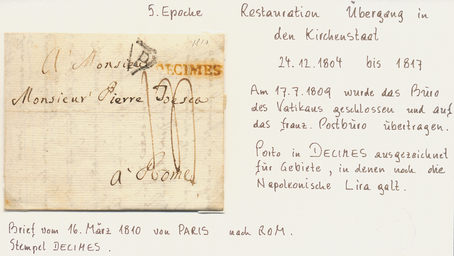 5. Epoche Restauration Übergang in
den Kirchenstaat
24.12.1804 bis 1817
A Monsieur
P
DECIMES
Monsieur Pierre
à Rome
Am 17.7.1809 wurde das Büro
des Vatikans geschlossen und auf
das franz. Postbüro übertragen.
Porto in DECIMES ausgezeichnet
für Gebiete, in denen noch die
Napoleonische Lira galt.
Brief vom 16. März 1810 von PARIS nach ROM.
Stempel DECIMES.